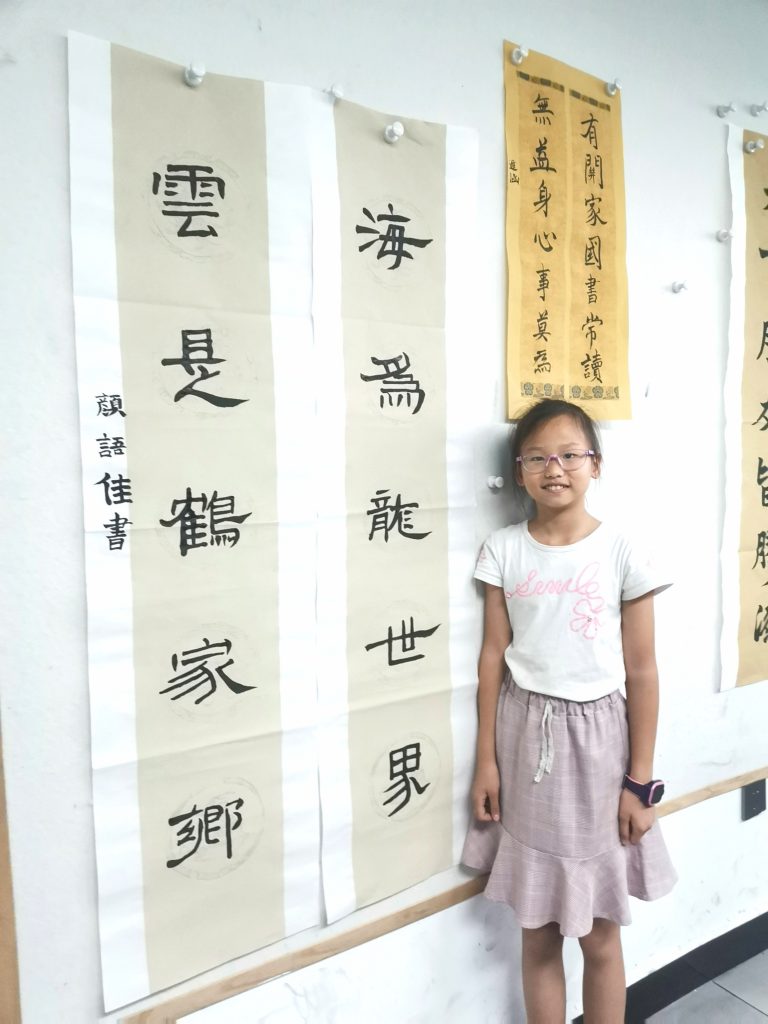 有關家國書常讀
無益身心事莫為
海為龍世界
雲是鶴家鄉
顏語佳書
Smile